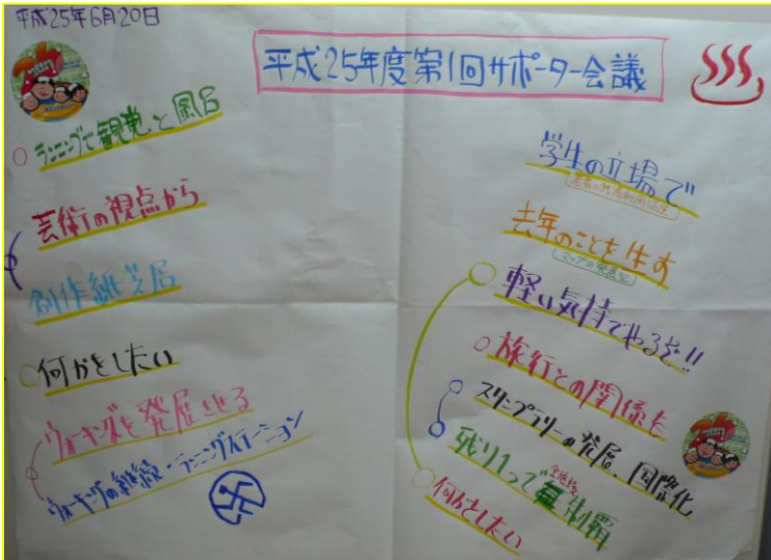 平成25年6月20日
平成25年度第1回サポーター会議
ランニングで観光と風呂
芸術の視点から
創作紙芝居
何かをしたい
ウォーキングを発展させる
ウォーキングの継続・ランニングステーション
学生の立場で
去年のことを生す
軽い気持でやるぞ!!
旅行との関係を
スタンプラリーの発展、国際化
残り1つで制覇
何かをしたい